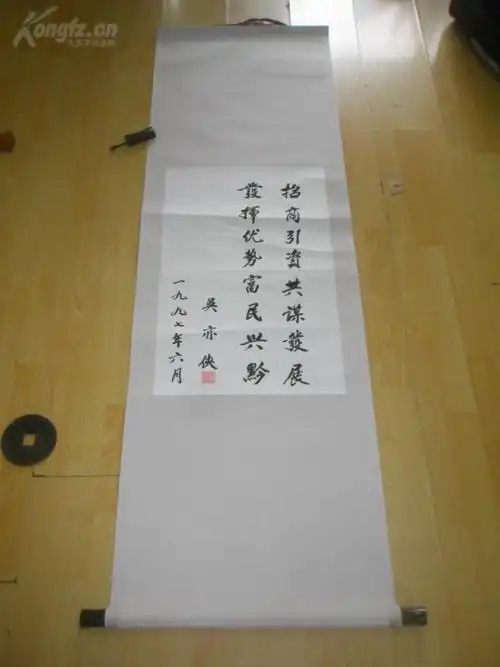 招商引資共謀發展
發揮优势富民興黔
吳亦俠
一九九七年六月
Kongfz.cn